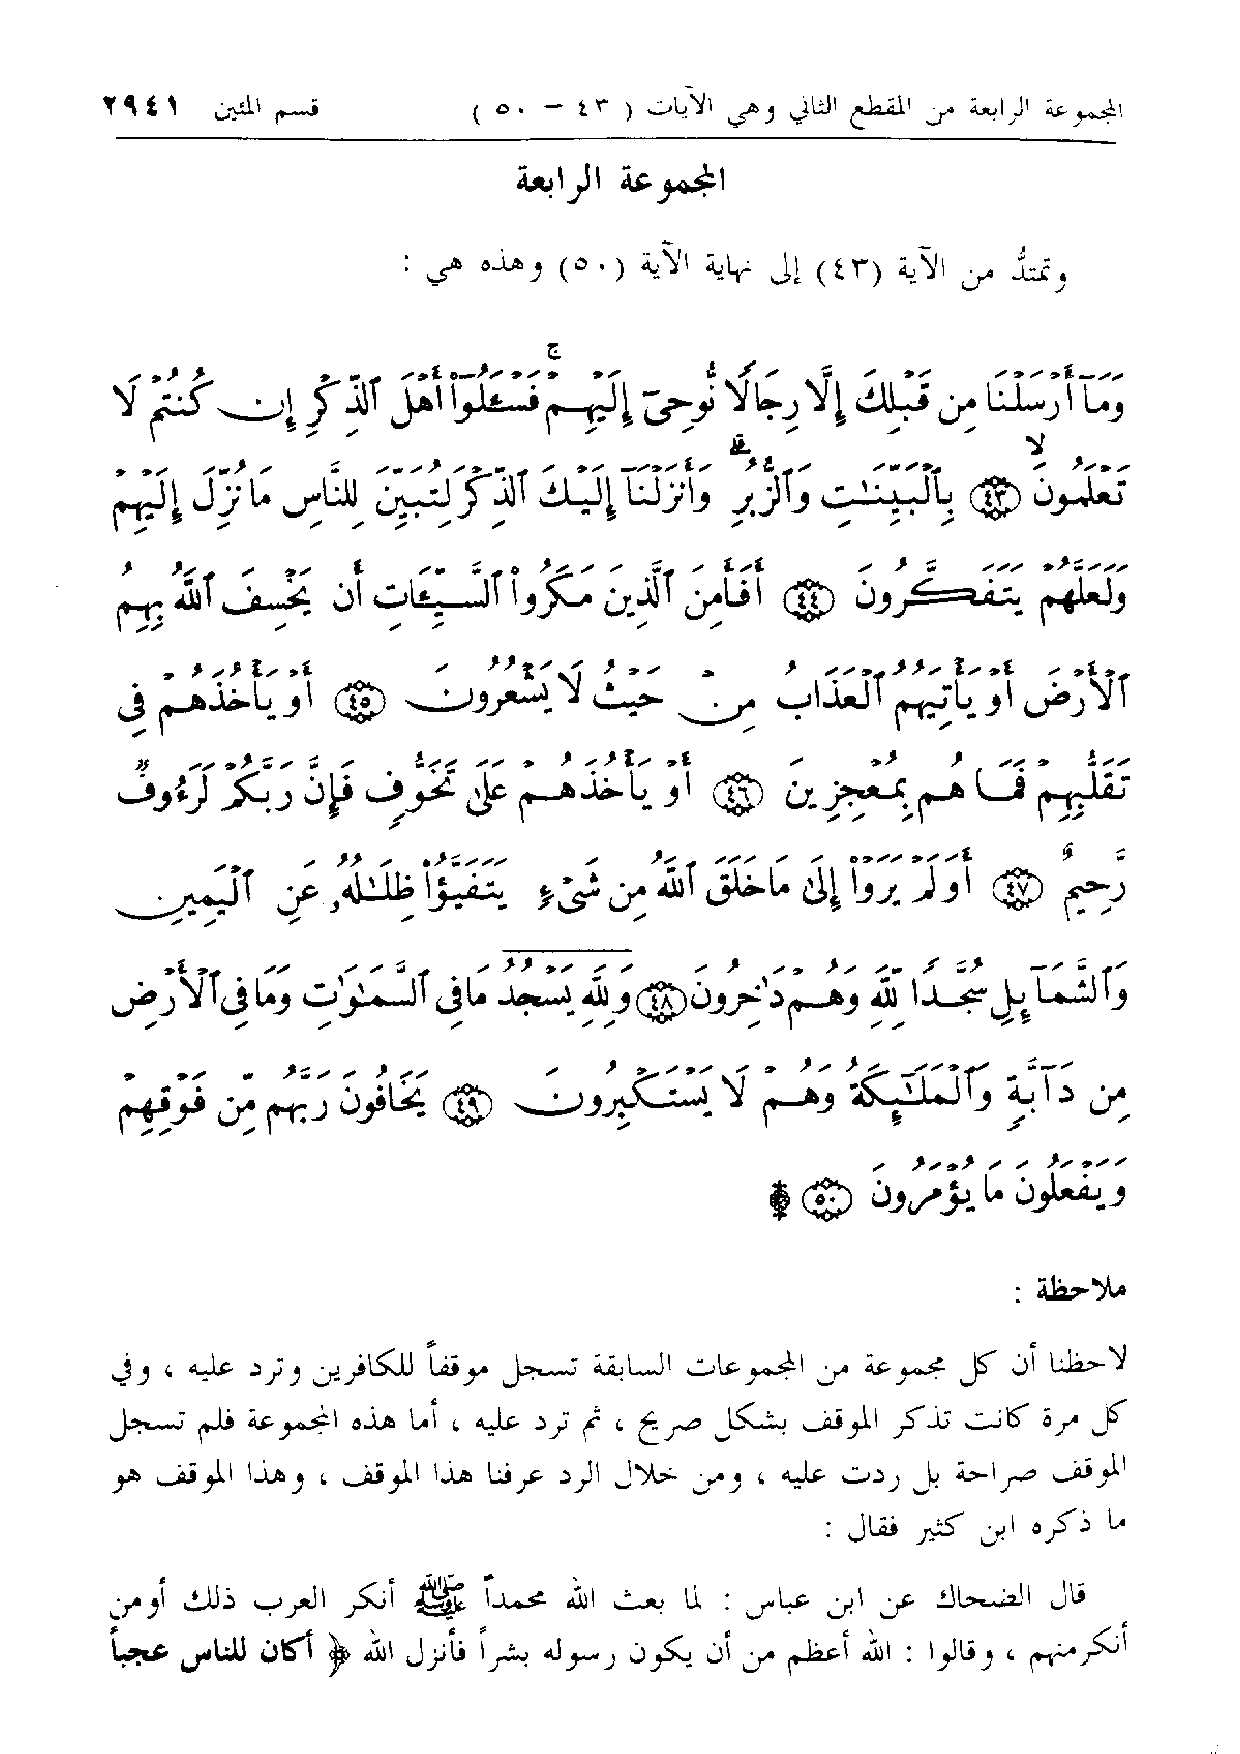 المجموعة الرابعة من المقطع الثاني وهي الآيات ( ٤٣ – ٥٠ ) قسم المئين ٢٩٤١
المجموعة الرابعة
وتمتدُّ من الآية (٤٣) إلى نهاية الآية (٥٠) وهذه هي :
وَمَآ أَرْسَلْنَا مِن قَبْلِكَ إِلَّا رِجَالًا نُّوحِىٓ إِلَيْهِمْ ۚ فَسْـَٔلُوٓا۟ أَهْلَ ٱلذِّكْرِ إِن كُنتُمْ لَا
تَعْلَمُونَ ﴿٤٣﴾ بِٱلْبَيِّنَـٰتِ وَٱلزُّبُرِ ۗ وَأَنزَلْنَآ إِلَيْكَ ٱلذِّكْرَ لِتُبَيِّنَ لِلنَّاسِ مَا نُزِّلَ إِلَيْهِمْ
وَلَعَلَّهُمْ يَتَفَكَّرُونَ ﴿٤٤﴾ أَفَأَمِنَ ٱلَّذِينَ مَكَرُوا۟ ٱلسَّيِّـَٔاتِ أَن يَخْسِفَ ٱللَّهُ بِهِمُ
ٱلْأَرْضَ أَوْ يَأْتِيَهُمُ ٱلْعَذَابُ مِنْ حَيْثُ لَا يَشْعُرُونَ ﴿٤٥﴾ أَوْ يَأْخُذَهُمْ فِى
تَقَلُّبِهِمْ فَمَا هُم بِمُعْجِزِينَ ﴿٤٦﴾ أَوْ يَأْخُذَهُمْ عَلَىٰ تَخَوُّفٍ فَإِنَّ رَبَّكُمْ لَرَءُوفٌ
رَّحِيمٌ ﴿٤٧﴾ أَوَلَمْ يَرَوْا۟ إِلَىٰ مَا خَلَقَ ٱللَّهُ مِن شَىْءٍ يَتَفَيَّؤُا۟ ظِلَـٰلُهُۥ عَنِ ٱلْيَمِينِ
وَٱلشَّمَآئِلِ سُجَّدًا لِّلَّهِ وَهُمْ دَٰخِرُونَ ﴿٤٨﴾ وَلِلَّهِ يَسْجُدُ مَا فِى ٱلسَّمَـٰوَٰتِ وَمَا فِى ٱلْأَرْضِ
مِن دَآبَّةٍ وَٱلْمَلَـٰٓئِكَةُ وَهُمْ لَا يَسْتَكْبِرُونَ ﴿٤٩﴾ يَخَافُونَ رَبَّهُم مِّن فَوْقِهِمْ
وَيَفْعَلُونَ مَا يُؤْمَرُونَ ﴿٥٠﴾
ملاحظة :
لاحظنا أن كل مجموعة من المجموعات السابقة تسجل موقفاً للكافرين وترد عليه ، وفي
كل مرة كانت تذكر الموقف بشكل صريح ، ثم ترد عليه ، أما هذه المجموعة فلم تسجل
الموقف صراحة بل ردت عليه ، ومن خلال الرد عرفنا هذا الموقف ، وهذا الموقف هو
ما ذكره ابن كثير فقال :
قال الضحاك عن ابن عباس : لما بعث الله محمداً ﷺ أنكر العرب ذلك أو من
أنكر منهم ، وقالوا : الله أعظم من أن يكون رسوله بشراً فأنزل الله ﴿ أكان للناس عجباً